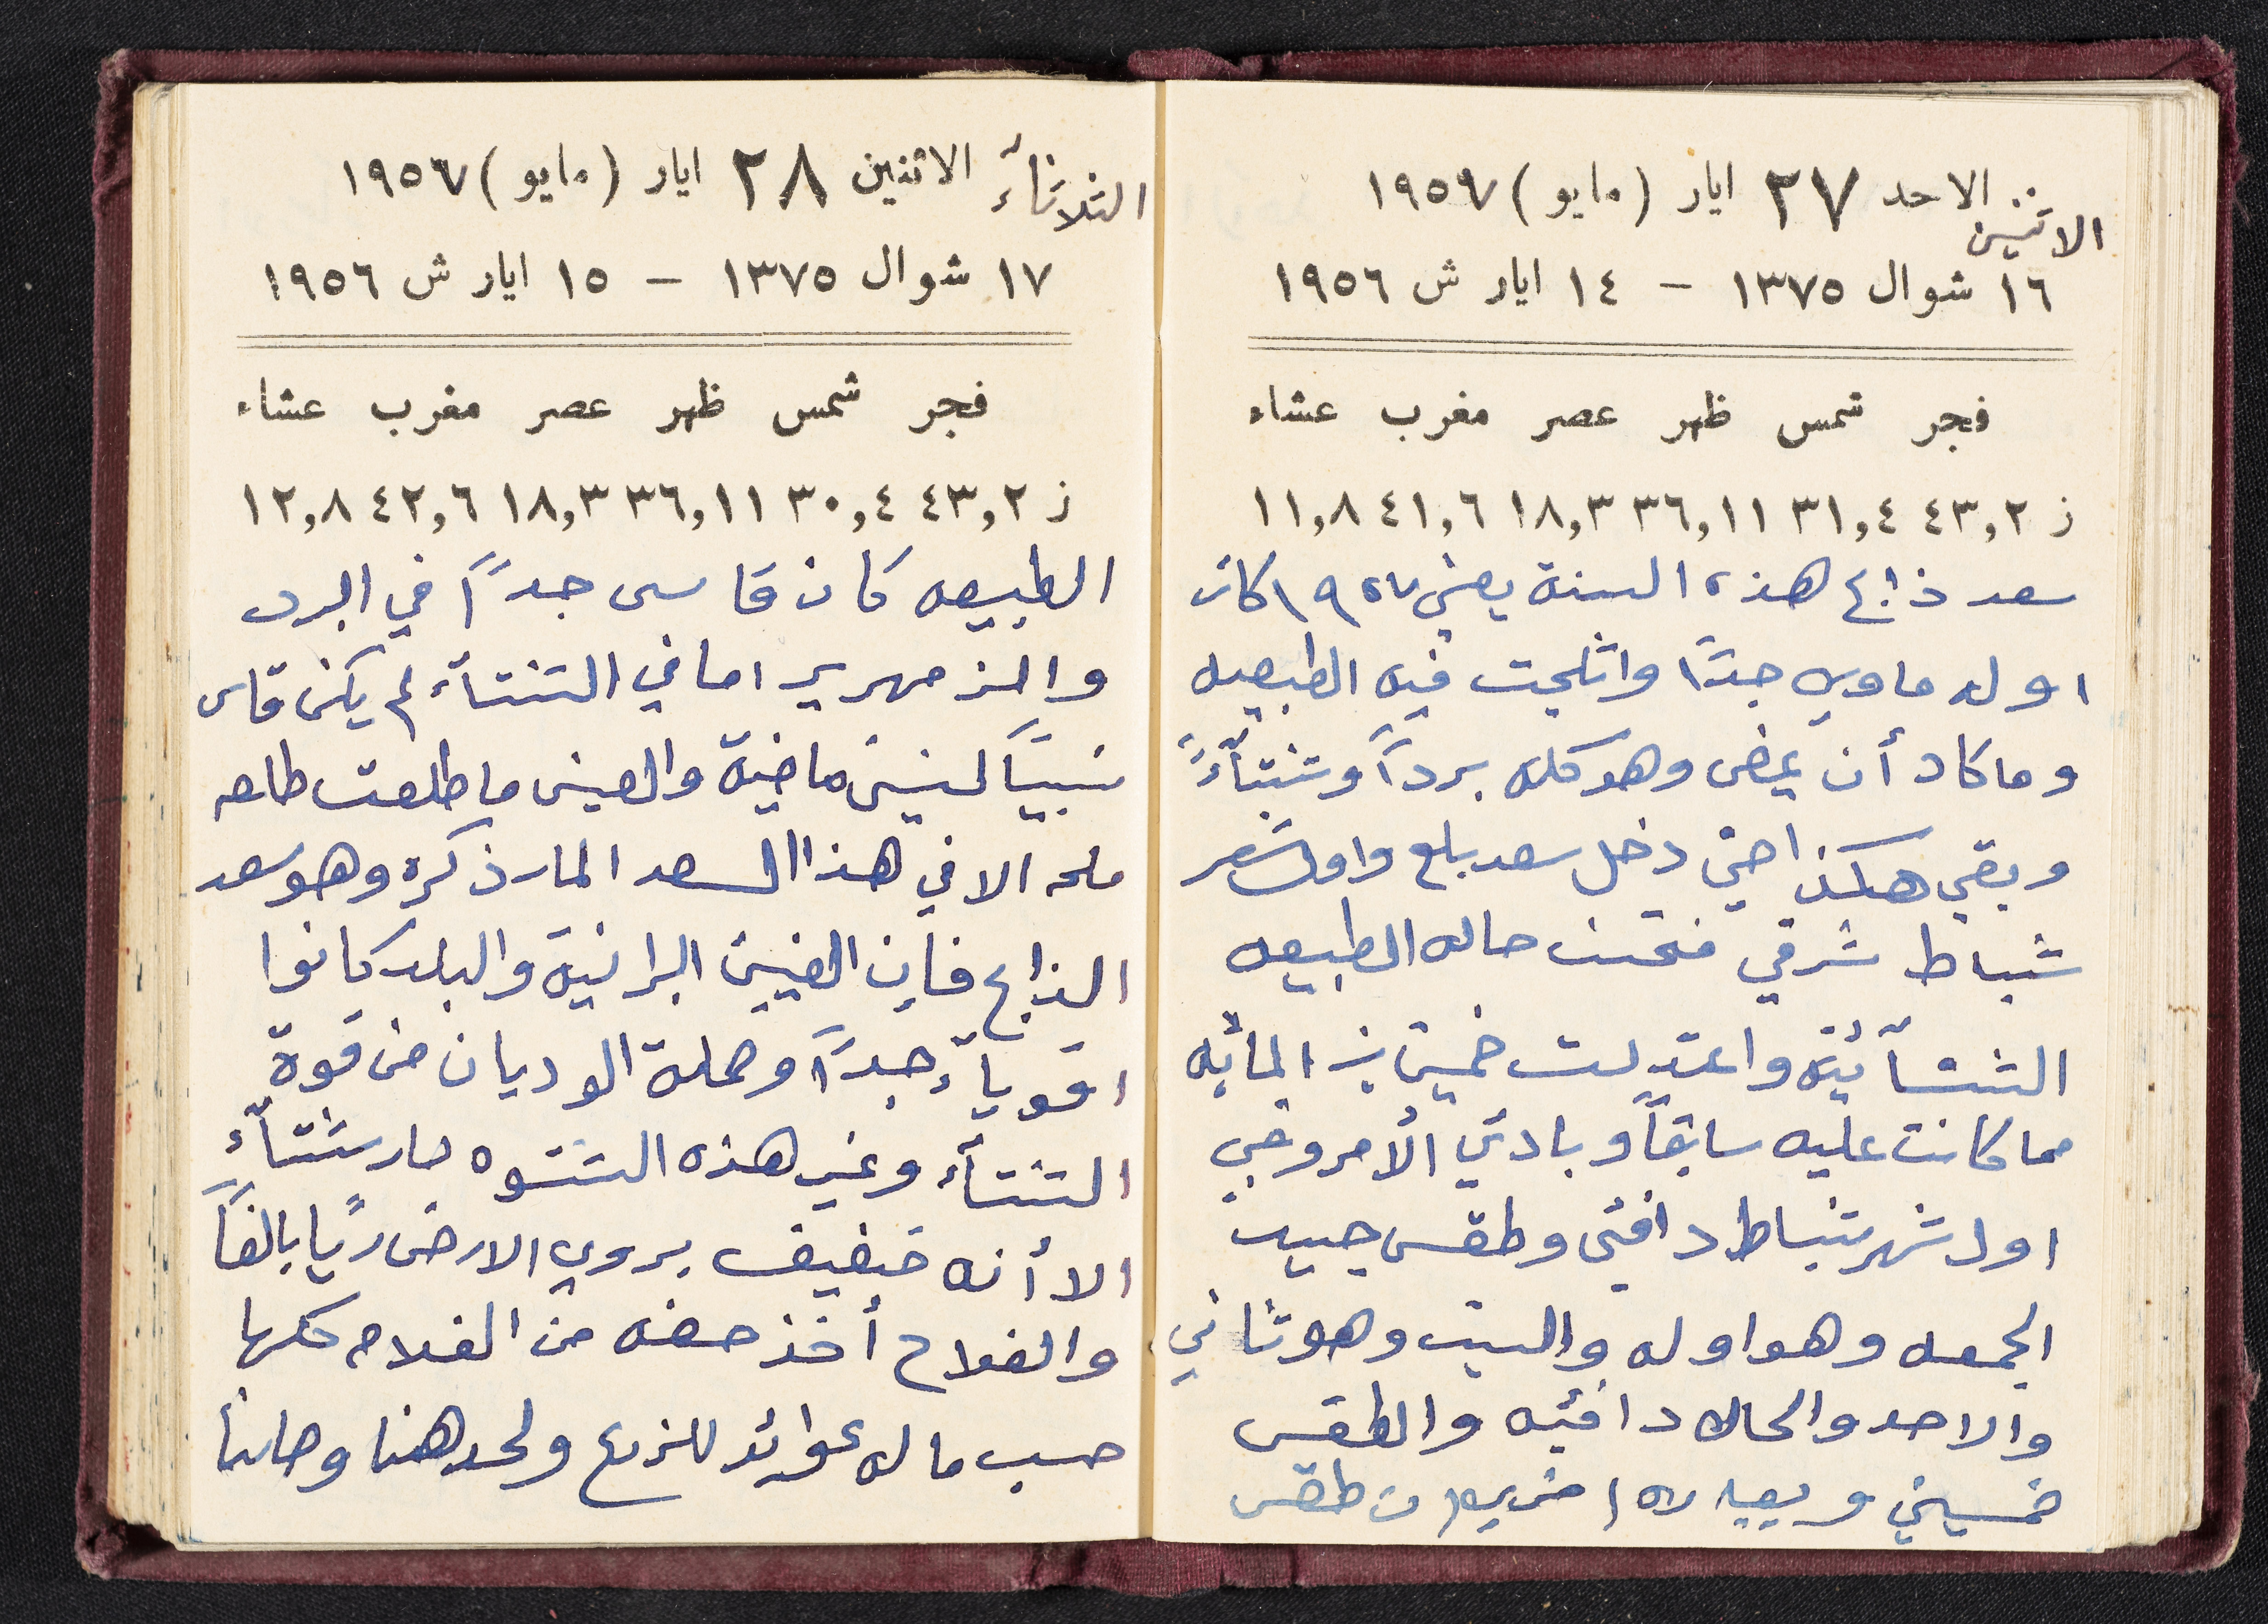 الاحد ٢٧ ايار (مايو) ١٩٥٧
الاثنين
١٦ شوال ١٣٧٥ - ١٤ ايار ش ١٩٥٦
فجر شمس ظهر عصر مغرب عشاء
ز ٤٣,٢ ٣١,٤ ٣٦,١١ ١٨,٣ ٤١,٦ ١١,٨
سعد ذابح هذه السنة يعني ١٩٥٧ كان
اوله ماوي جدًا واثلجت فيه الطبيعه
وما كاد أن يمضى وهو كله برداً وشتآءً
وبقي هكذا حتى دخل سعد بلع واول شهر
شباط شرقي فتحسنت حاله الطبيعه
الشتآئيه واعتدلت خمسين بالمأيه
مما كانت عليه سابقاً وبادئ الأمر وفي
اول شهر شباط دافئ وطقس جيد
الجمعه وهو اوله والسبت وهو ثاني
والاحد والحاله دافئه والطقس
خمسيني طقس
الثلاثآء الاثنين ٢٨ ايار (مايو) ١٩٥٧
١٧ شوال ١٣٧٥ - ١٥ ايار ش ١٩٥٦
فجر شمس ظهر عصر مغرب عشاء
ز ٤٣,٢ ٣٠,٤ ٣٦,١١ ١٨,٣ ٤٢,٦ ١٢,٨
الطبيعه كان قاسى جداً في البرد
والزمهرير اما في الشتآء لم يكن قاس
نسبياً لسنين ماضية والعين ما طلعت طاعه
ملحه الا في هذا السعد المار ذكره وهو سعد
الذابح فإن العينين البرانية والبلد كانوا
اقويآء جداً وحملة الوديان من قوة
الشتآء وغير هذه الشتوه صار شتآء
الا أنه خفيف يروي الارض ريًا بالغاً
والفلاح أخذ حضه من الفلاحه كلها
حسب ماله عوائد للزرع ولحد هنا وصلنا